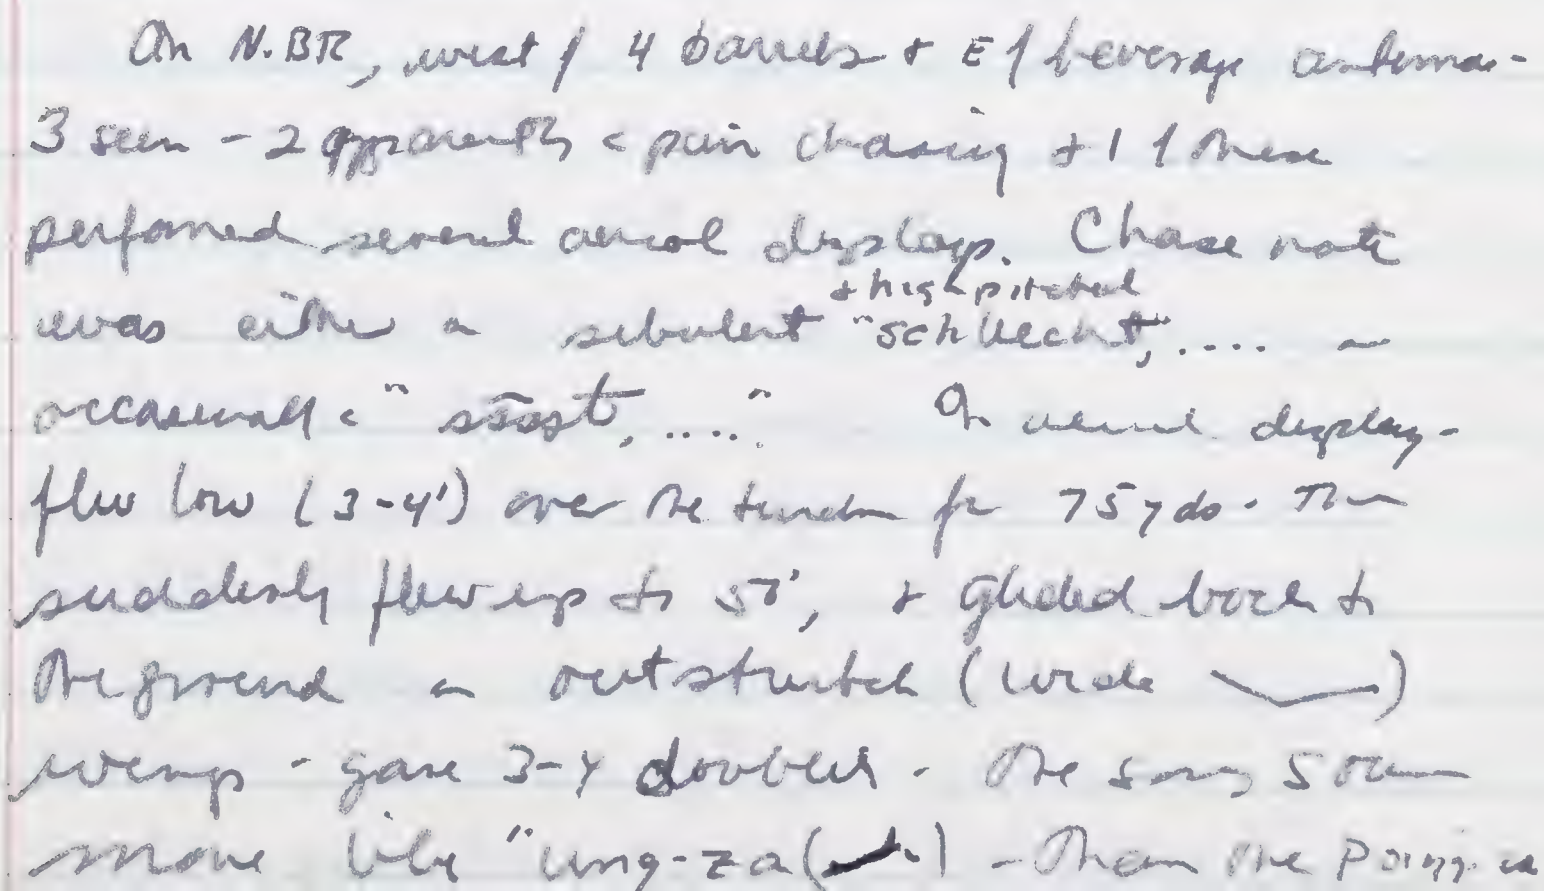 On N.BR, west / 4 barrels + E / beverage antennae -
3 seen - 2 apparently a pair chasing + 1 / these
performed several aerial displays. Chase note
+ high pitched
was either a sibulent "schllecht, .... or
occasionally a "sāāst, ....". In aerial display -
flew low (3-4') over the tundra for 75 yds. Then
suddenly flew up to 50', + glided back to
the ground on outstretched (wide) 
wings - gave 3-4 doubles. The song
more like "ung-za( ) - than the